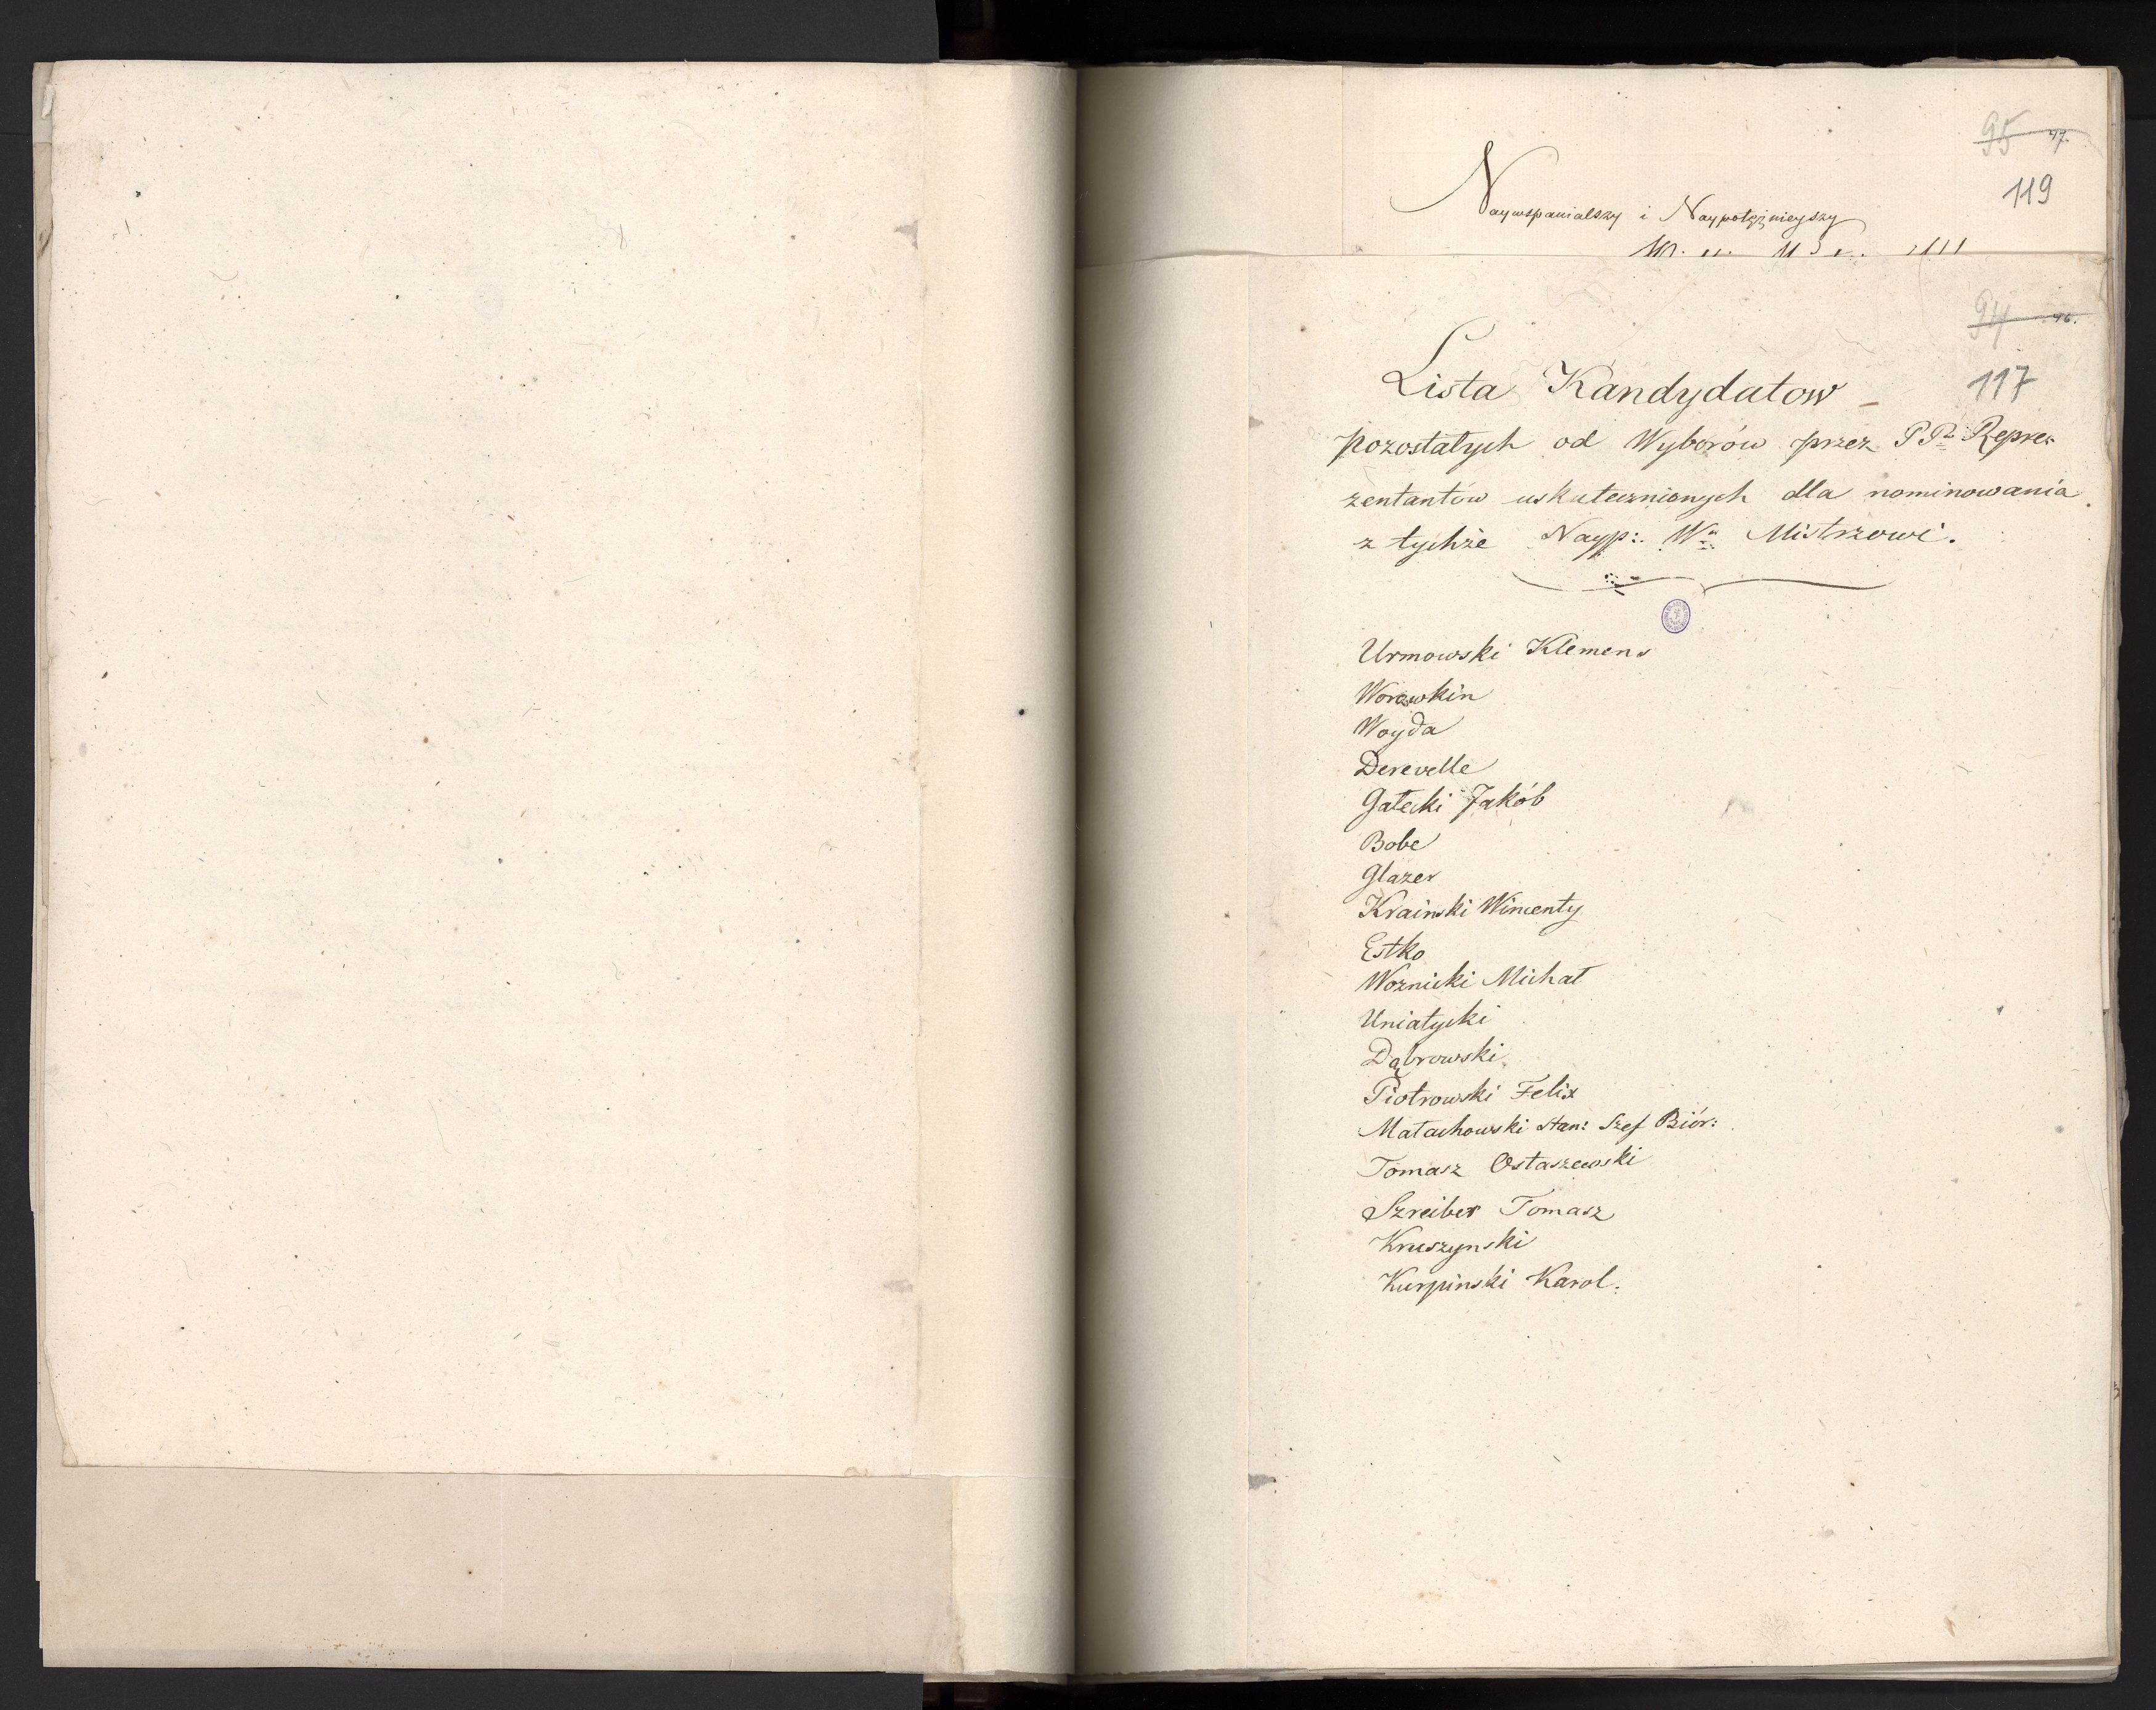 95 47.
119
Naywspanialszy i Naypotężnieyszy
94 46.
117
Lista Kandydatow
pozostałych od Wyborów przez P Pa Repre-
zentantów uskutecznionych dla nominowania
z tychże Nayp: Wu Mistrzowi.
Urmowski Klemens
Worowkin
Woyda
Derevelle
Gałecki Jakób
Bobe
Glazer
Krainski Wincenty
Estko
Woznicki Michał
Uniatycki
Dąbrowski
Piotrowski Felix
Małachowski Stan: Szef Biór:
Tomasz Ostaszewski
Szreiber Tomasz
Kruszynski
Kurpinski Karol.